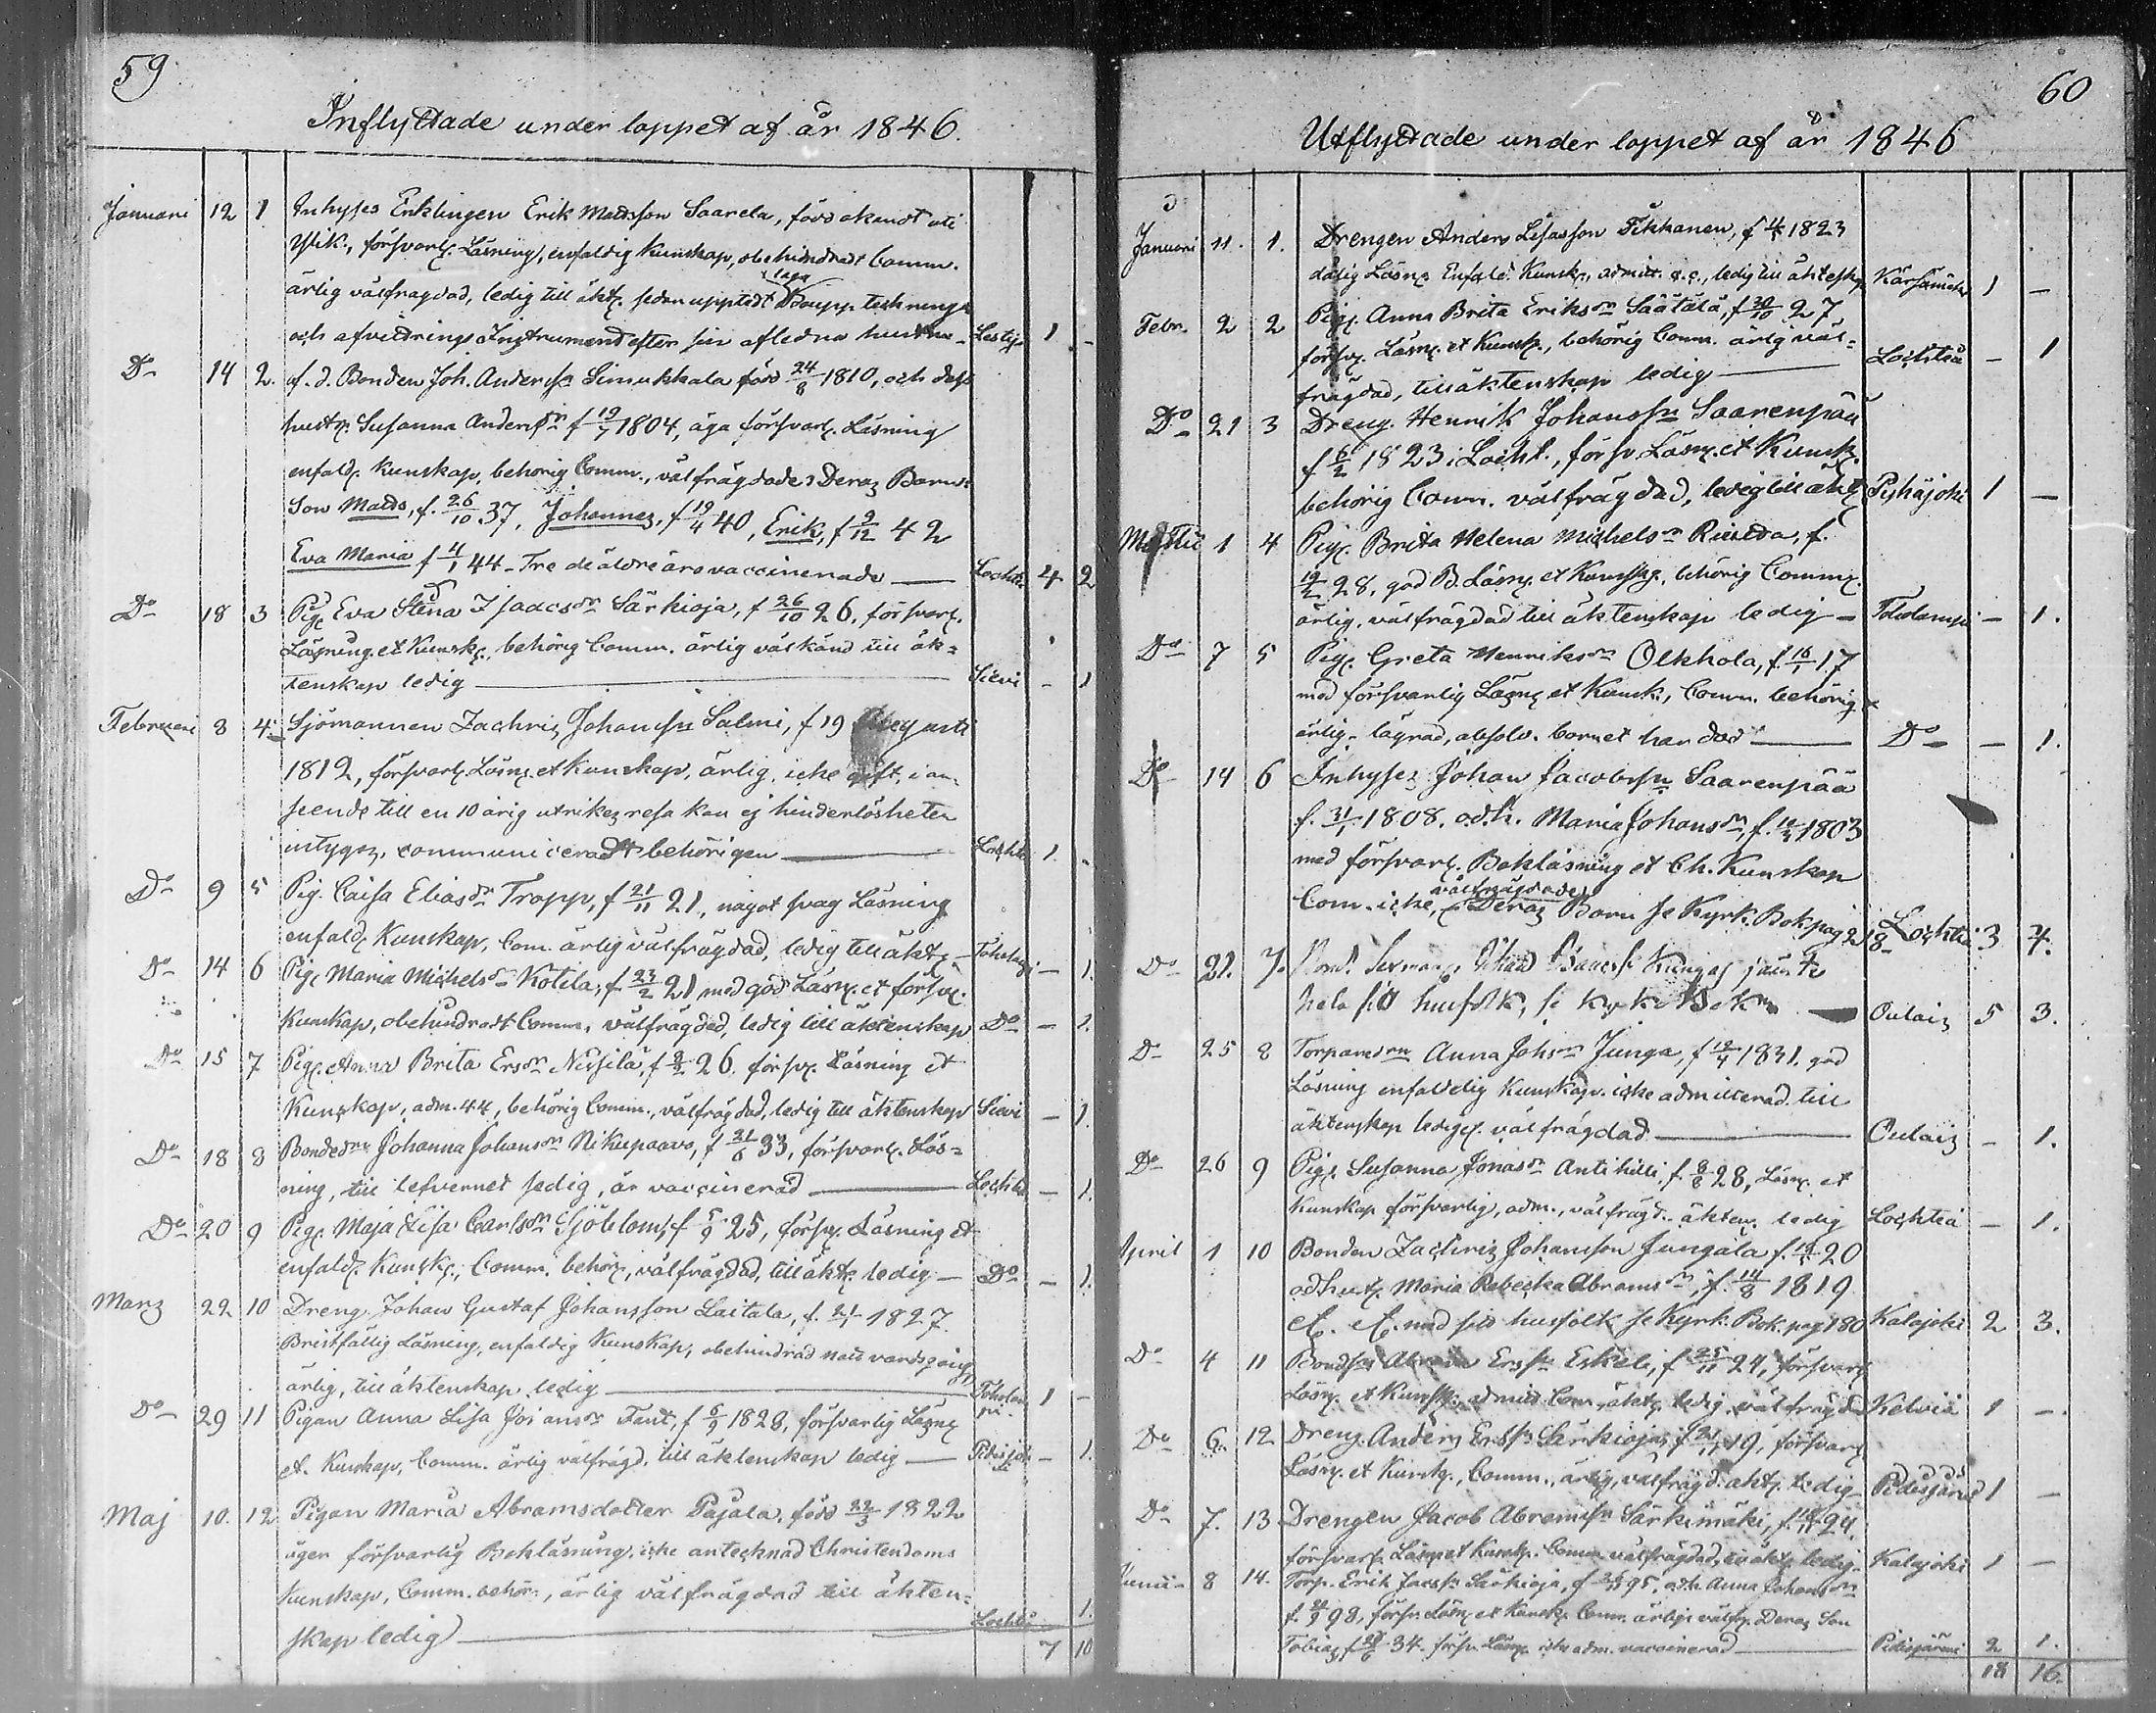 59
Inflyttade under loppet af år 1846.
Januari 12 1 Inhyses Enklingen Erik Mattsson Saarela, född okändt uti
försvarl. Läsning, enfaldig Kunskap, obehindradt Comm.
ärlig välfrägdad, ledig till äkt. sedan upptedt
och afvittrings Instrument efter sin aflidna hustru - Lestij. 1 -
Do 14 2. af. d. Bonden Joh. Anderss. Simukkala född 24/8 1810, och dess
hustr. Susanna Andersdr f 19/7 1804, äga försvarl. Läsning
enfald. Kunskap, behörig Comm., välfrägdade. Deras Barn
Son Matts, f. 26/10 37, Johannes, f 19/4 40, Erik, f 9/12 42
Eva Maria f 4/1 44 - Tre de äldre äro vaccinerade — Lochte 4 2
Do 18 3 Pig. Eva Stina Isaacsdr Särkioja, f 26/10 26, försvarl.
Läsning et Kunsk., behörig Comm. ärlig välkänd till äk-
tenskap ledig — Sievi - 1
Februari 8 4. Sjömannen Zachris Johanss. Salmi, f 19 Augusti
1812, försvarl. Läsn. et Kunskap, ärlig, icke gift, i an-
seende till en 10 årig utrikes resa kan ej hinderlösheten
intygas, communiceradt behörigen — Lochte 1. -
Do 9 5 Pig. Caisa Eliasdr Trapp, f 21/11 21, något svag Läsning
enfald. Kunskap, Com. ärlig välfrägdad, ledig till äkt. - Toholampi - 1.
Do 14 6 Pig. Maria Michelsdr Kotila, f 23/2 21 med god Läsn. et försv.
Kunskap, obehindradt Comm. välfrägdad, ledig till äktenskap Do - 1.
Do 15 7 Pig. Anna Brita Ersdr Nissilä, f 26. försv. Läsning et
Kunskap, adm. 44, behörig Comm., välfrägdad, ledig till äktenskap Sievi - 1.
Do 18 8 Bondedr Johanna Johansdr Nikupaavo, f 21/6 33, försvarl. Läs-
ning, till lefvernet sedig, är vaccinerad — Lochte - 1.
Do 20 9 Pig. Maja Lisa Carlsdr Sjöblom, f 5/9 25, försv. Läsning et
enfald. Kunsk., Comm. behör., välfrägdad, till äkt. ledig — Do - 1.
Mars 22 10 Dreng. Johan Gustaf Johansson Laitala, f. 1827.
Bristfällig Läsning, enfaldig Kunskap, obehindrad nattvardsgång
ärlig, till äktenskap ledig — Toholampi. 1 -
Do 29 11 Pigan Anna Lisa Fant, f 6/9 1828, försvarlig Läsn.
et. Kunskap, Comm. ärlig välfrägd. till äktenskap ledig — Pedersjöre - 1.
Maj 10. 12 Pigan Maria Abramsdotter Pajala, född 22/3 1822
äger försvarlig Bokläsning, icke antecknad Christendoms
Kunskap, Comm. behör., ärlig välfrägdad till äkten-
skap ledig — Lochte 1.
7 10
60
Utflyttade under loppet af år 1846
Januari 11. 1. Drengen Anders Lisasson Tikkanen, f 4/4 1823
dålig Läsn. Enfald. Kunsk., admitt. ledig till äktensk. Kärsämäki 1 -
Febr. 2 2 Pig. Anna Brita Eriksdr Säätälä, f 20/10 27,
försv. Läsn. et Kunsk., behörig Comm. ärlig väl-
frägdad, till äktenskap ledig — Lochteå - 1
Do 21 3 Dreng. Henrik Johanss. Saarenpää
f 6/2 1823 i Locht., försv. Läsn. et Kunsk.
behörig Comm. välfrägdad, ledig till äkt. Pyhäjoki 1 -
Martii 1 4 Pig. Brita Helena Michelsdr, f.
19/2 28, god B. Läsn. et Kunsk., behörig Comm.
ärlig, välfrägdad till äktenskap ledig — Toholampi - 1.
Do 7 5 Pig. Greta Henriksdr Olkkola, f. 16/1 17
med försvarlig Läsn. et Kunsk., Comm. behörig
ärlig, lägrad, absolv. barnet har död — Do - 1.
Do 14 6 Inhyses Johan Jacobss. Saarenpää
f. 31/1 1808. o.d.h. Maria Johansdr, f. 1803
med försvarl. Bokläsning et Ch. Kunskap
Com. icke, välfrägdade, Deras Barn se Kyrk. Bok pag 218 Lochteå 3 4.
Do 21. 7. jämte
hela sitt husfolk, se Kyrko Bokn — Oulais 5 3.
Do 25 8 Torparedrn Anna Johsdr Junga, f 12/4 1831. god
Läsning enfaldig Kunskap. icke admitterad. till
äktenskap ledig, välfrägdad — Oulais - 1.
Do 26 9 Pig. Susanna Jonasdr Anttihilli, f. 8/6 28, Läsn. et
Kunskap försvarlig, adm., välfrägd. äkten. ledig Lochteå - 1.
April 1 10 Bonden Zachris Johansson Jungala f. 20
o d hust. Maria Rebecka Abramsdr, f. 14/8 1819
etc. etc. med sitt husfolk se Kyrk. Bok. pag 180 Kalajoki 2 3.
Do 4 11 Bondes. Abram Erss. Eskeli, f 25/11 24, försvarl.
Läsn. et Kunsk., admitt. Com., äkt. ledig, välfrägd. Kelviå 1 -
Do 6. 12 Dreng. Anders Erss. Särkioja, f 19, försvarl.
Läsn. et Kunsk., Comm., ärlig, välfrägd. äkt. ledig Pedersjöre 1 -
Do 7. 13 Drengen Jacob Abramss. Särkimäki, f. 24.
försvarl. Läsn. et Kunsk. Comm. välfrägdad, till äkt. ledig Kalajoki 1 -
Junii 8 14. Torp. Erik Jacss. Särkioja, f 95, o d h. Anna Johansdr
f. 98, försv. Läsn. et Kunsk. Comm. ärliga välfr. Deras Son
Tobias, f 34. försv. Läsn. icke adm. vaccinerad — Pedersjöre 2 1.
18 16.